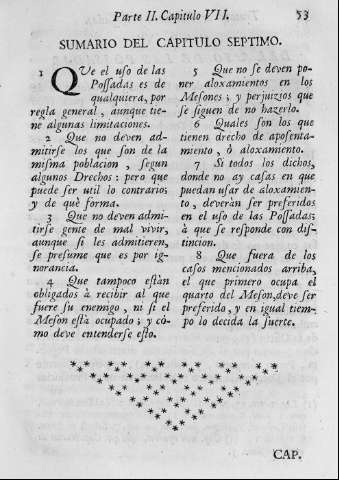 Parte II. Capitulo VII. 53
SUMARIO DEL CAPITULO SEPTIMO.
1 QUe el uſo de las
Poſſadas es de
qualquiera, por
regla general, aunque tie-
ne algunas limitaciones.
2 Que no deven ad-
mitirſe los que ſon de la
miſma poblacion, ſegun
algunos Drechos: pero que
puede ſer util lo contrario;
y de què forma.
3 Que no deven admi-
tirſe gente de mal vivir,
aunque ſi les admitieren,
ſe preſume que es por ig-
norancia.
4 Que tampoco eſtàn
obligados à recibir al que
fuere ſu enemigo, ni ſi el
Meſon eſtà ocupado; y cò-
mo deve entenderſe eſto.
5 Que no ſe deven po-
ner aloxamientos en los
Meſones; y perjuizios que
ſe ſiguen de no hazerlo.
6 Quales ſon los que
tienen drecho de apoſenta-
miento, ò aloxamento.
7 Si todos los dichos,
donde no ay caſas en que
puedan uſar de aloxamien-
to, deveràn ſer preferidos
en el uſo de las Poſſadas;
à que ſe reſponde con diſ-
tincion.
8 Que fuera de los
caſos mencionados arriba,
el que primero ocupa el
quarto del Meſon, deve ſer
preferido, y en igual tiem-
po lo decida la ſuerte.
CAP.